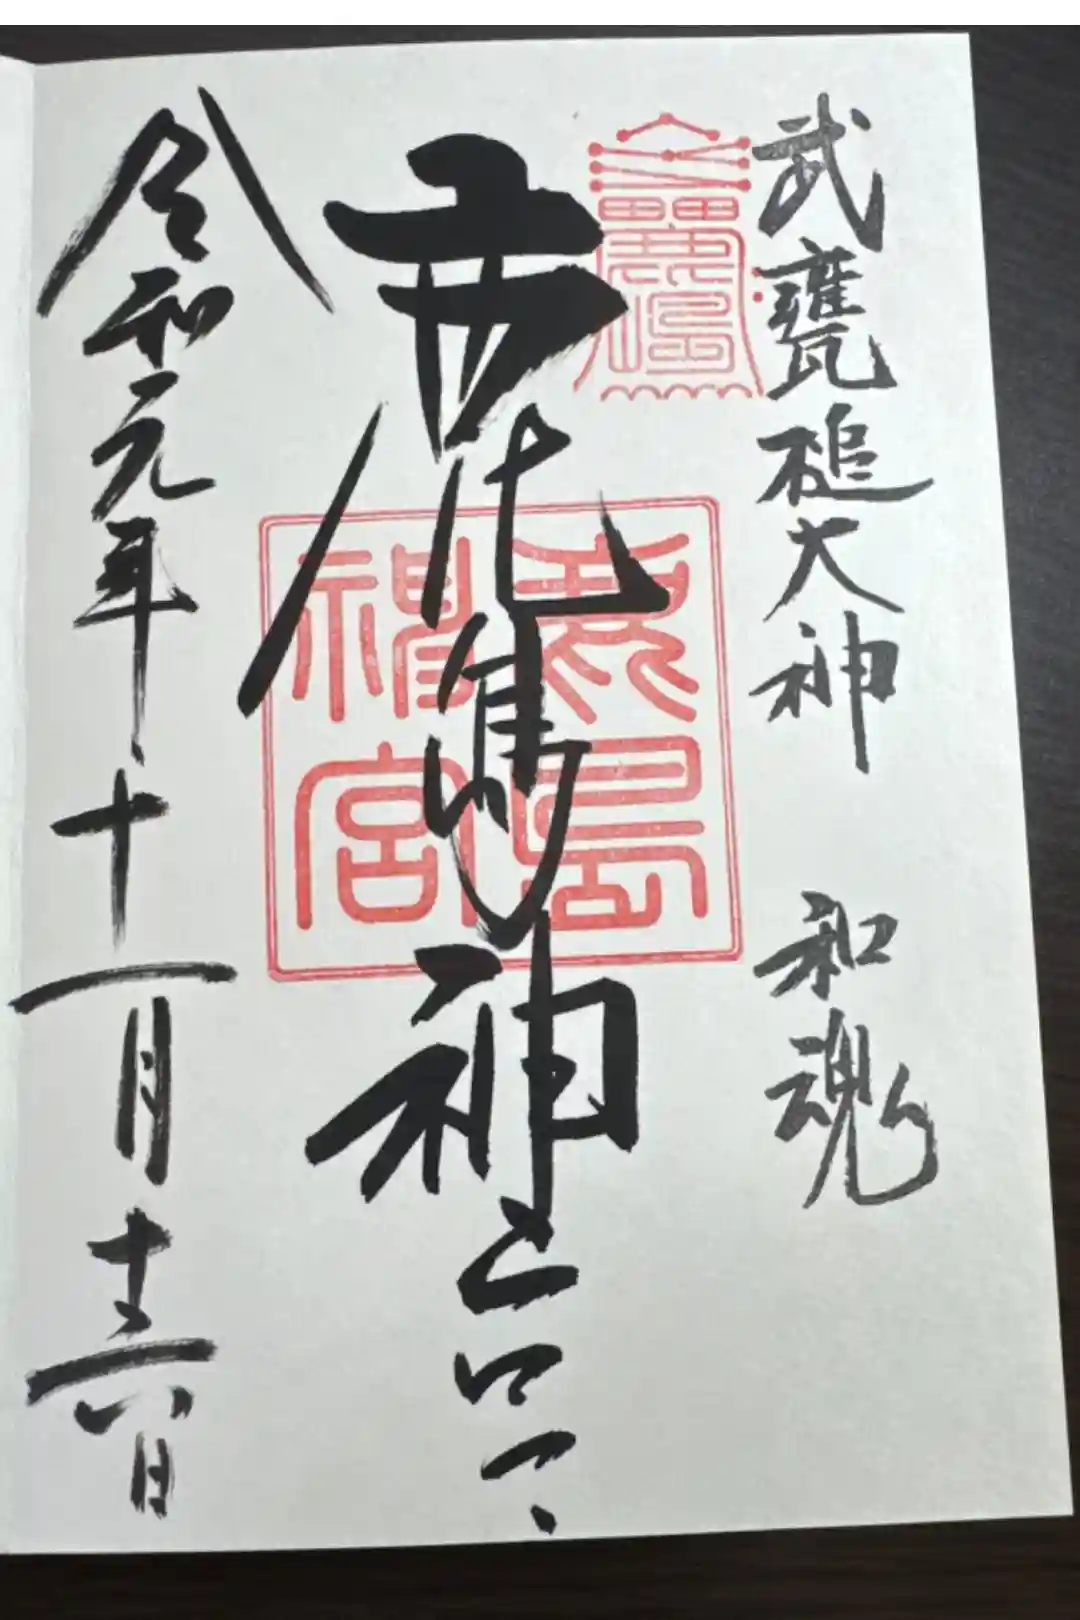 武甕槌大神 和魂
鹿島神宮
鹿島
神宮
令和元年十一月十六日